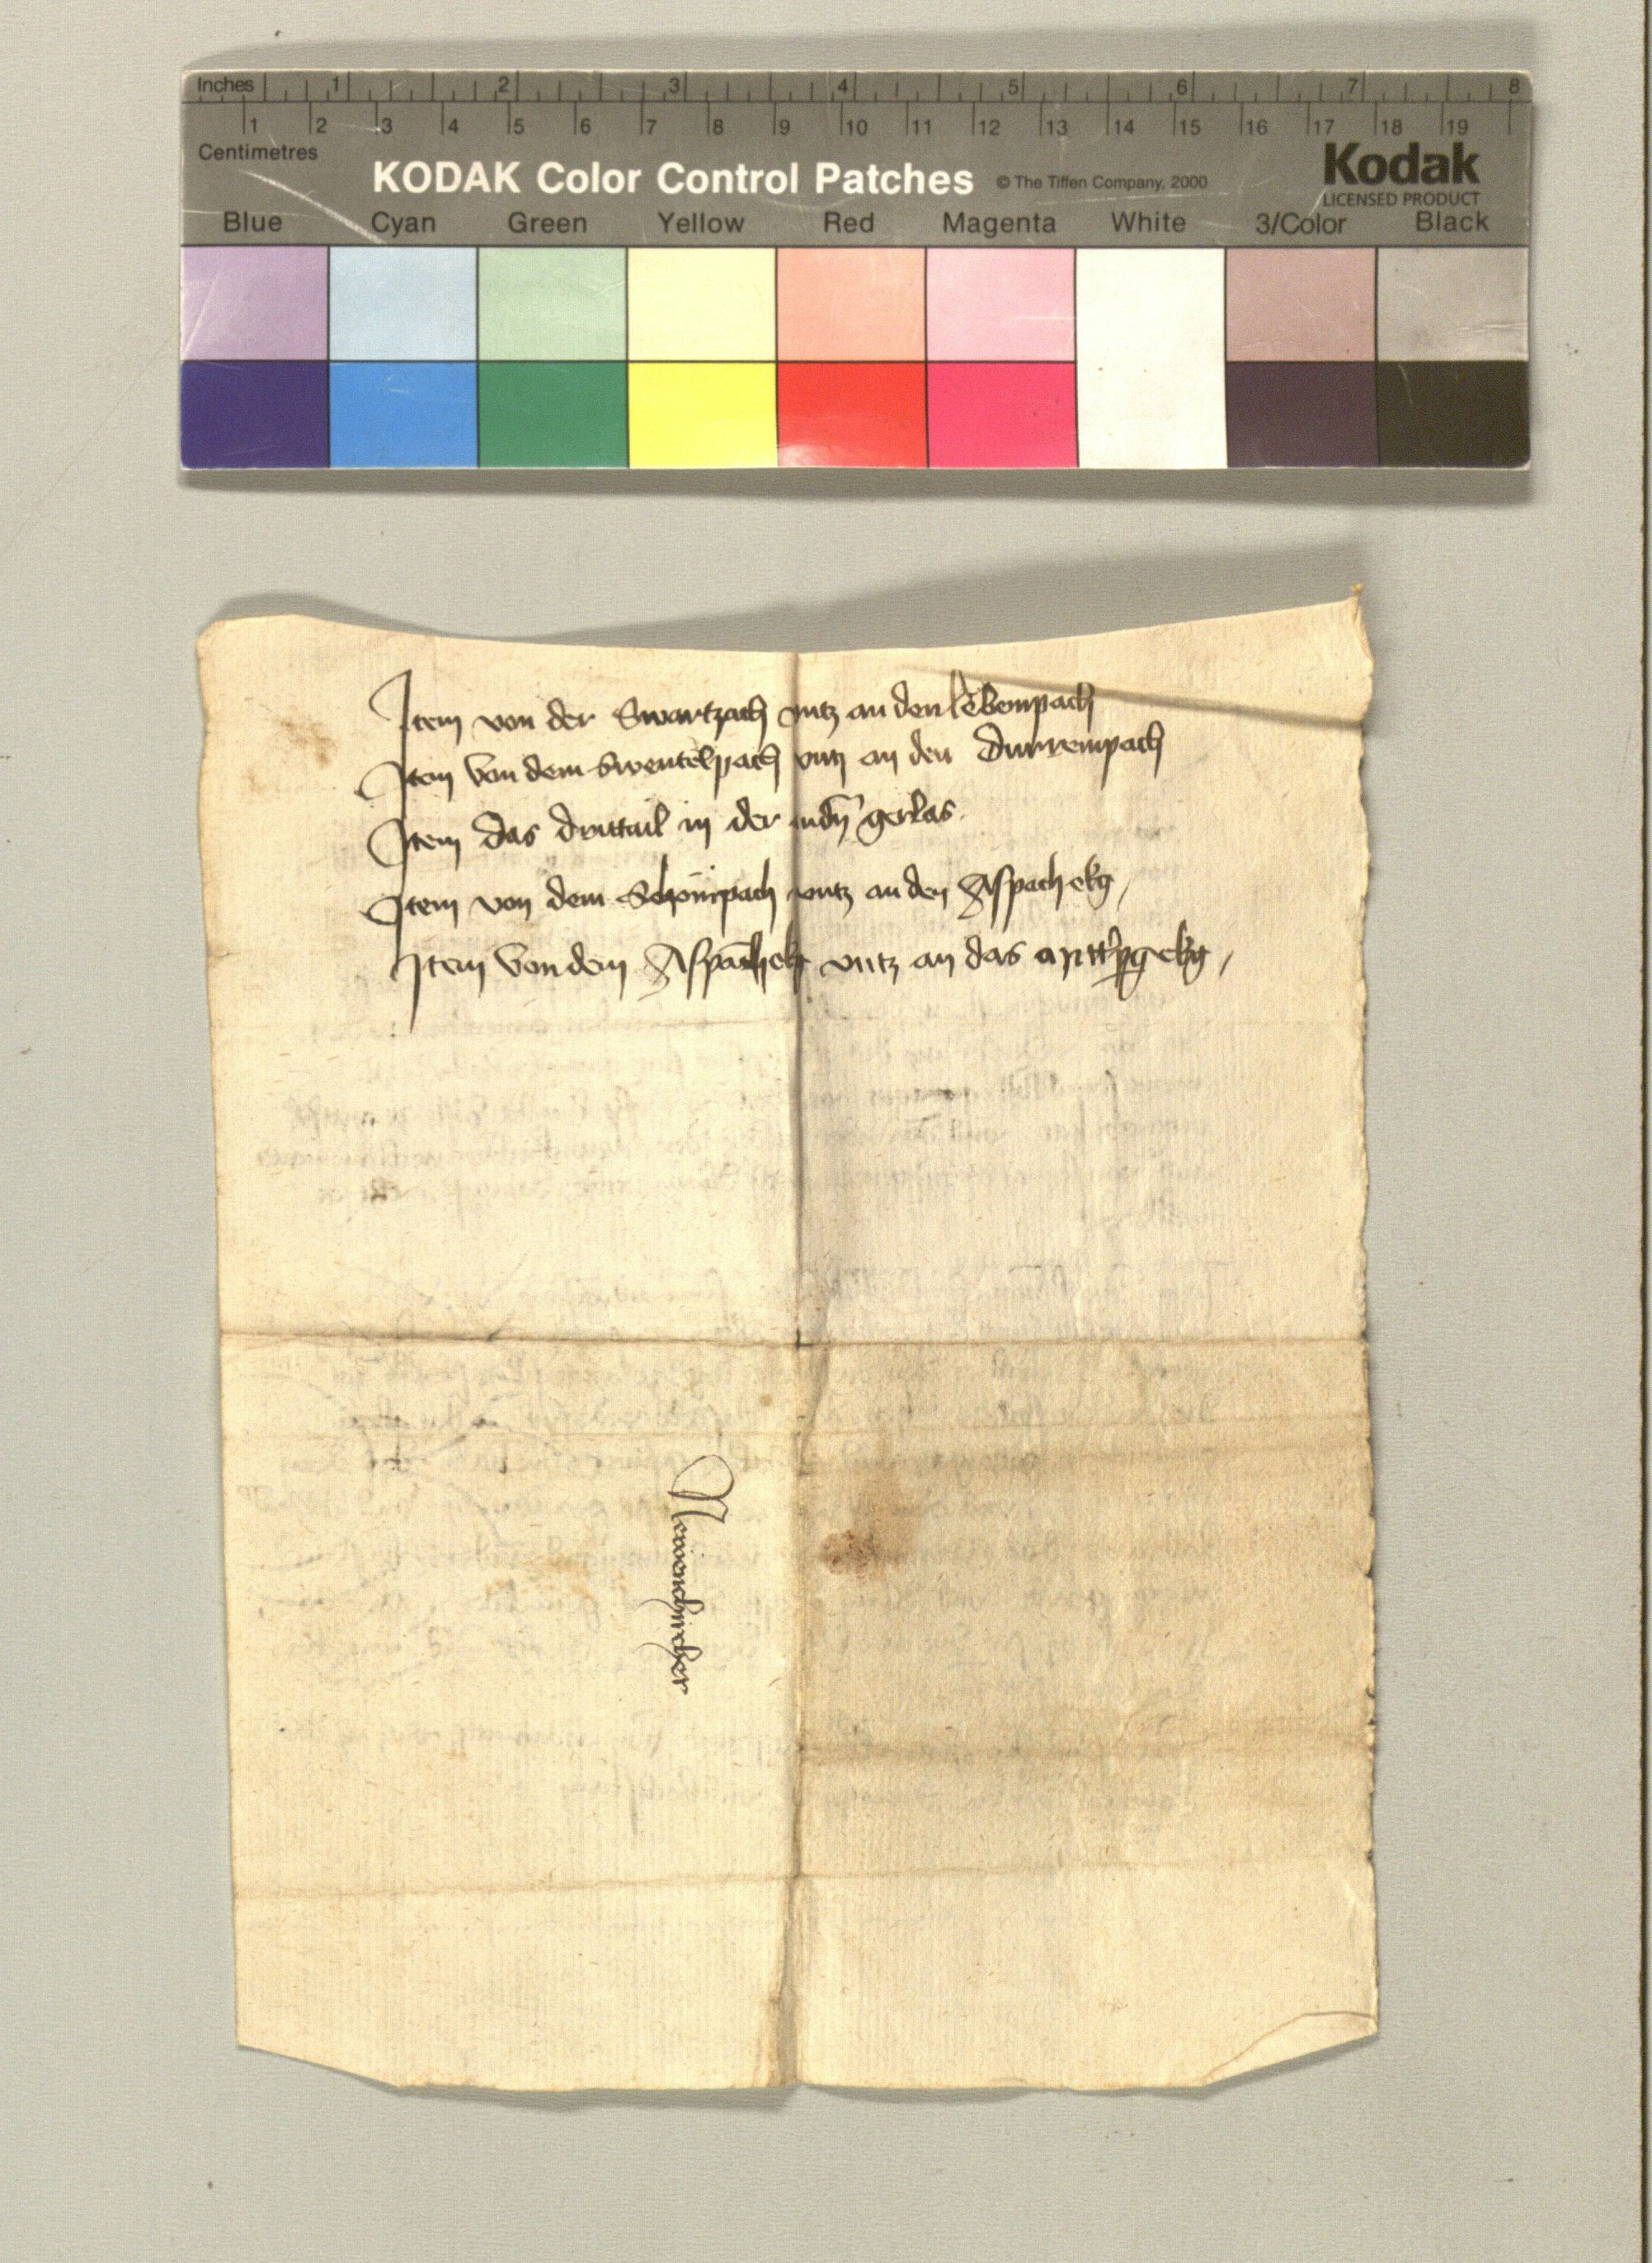 Inches 1 2 3 4 5 6 7 8
1 2 3 4 5 6 7 8 9 10 11 12 13 14 15 16 17 18 19
Centimetres
KODAK Color Control Patches © The Tiffen Company, 2000 Kodak
LICENSED PRODUCT
Blue Cyan Green Yellow Red Magenta White 3/Color Black
Item von der Swartzach vntz an den lebempach
Item von dem Swentelpach vntz an den Durrempach
Item das drittail in der gerlas
Item von dem Schonpach vntz an den Aspach ekg
Item von dem Aspach ek vntz an das
Newenchircher